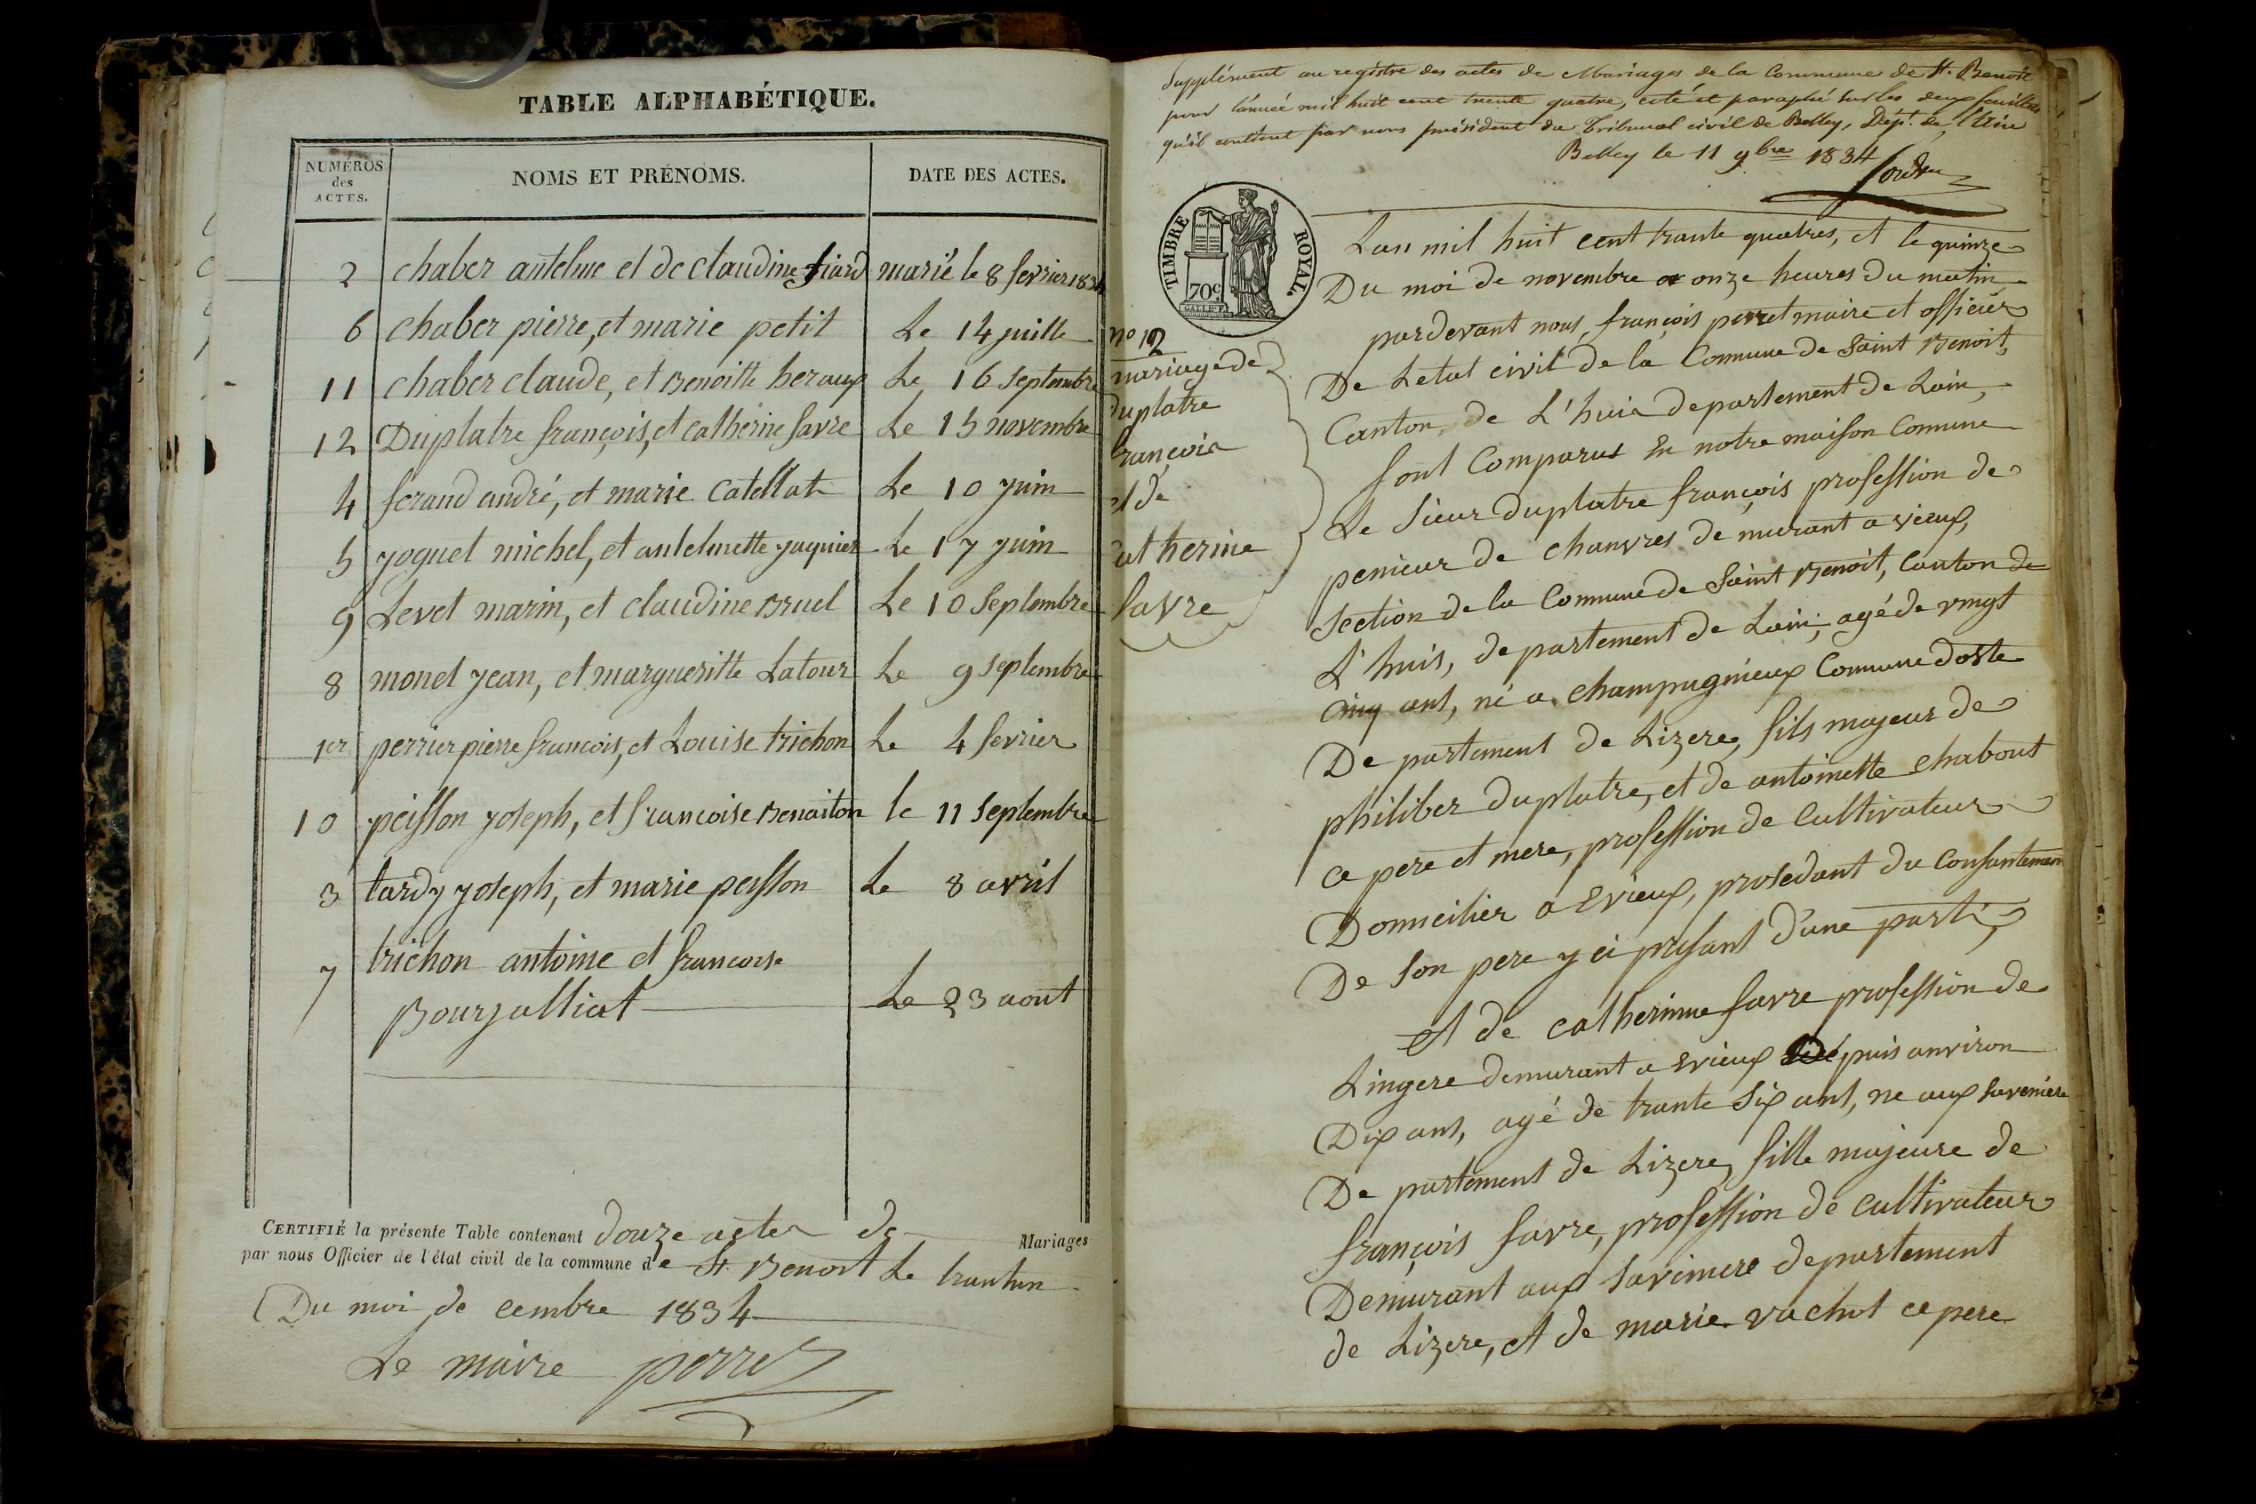 TABLE ALPHABÉTIQUE.
NUMÉROS des ACTES. NOMS ET PRÉNOMS. DATE DES ACTES.
2 chaber antelme et de claudine fiard marié le 8 fevrier 1834
6 chaber pierre, et marie petit Le 14 juille
11 chaber claude, et Benoitte heraux Le 16 septembre
12 Duplatre françois, et catherine favre Le 15 novembre
4 ferand andré, et marie Catellat Le 10 juin
5 joguet michel, et antelmette jaquier Le 17 juin
9 Levet marin, et claudine Bruel Le 10 Septembre
8 monet jean, et margueritte Latour Le 9 septembre
1er perrier pierre francois, et Louise trichon Le 4 fevrier
10 peisson joseph, et francoise Benaiton le 11 septembre
3 tardy joseph, et marie peisson Le 8 avril
7 trichon antoine et francoise
Bourjalliat Le 23 aout
CERTIFIÉ la présente Table contenant douze actes de Mariages
par nous Officier de l'état civil de la commune de St Benoit Le trantun
Du moi de cembre 1834
Le maire perret
Supplément au registre des actes de Mariages de la Commune de St. Benoit
pour l'année mil huit cent trente quatre, coté et paraphé sur les deux feuillets
qu'il contient par nous président du Tribunal civil de Belley, Dépt. de l'Ain
Belley le 11 9bre 1834
TIMBRE ROYAL.
70c
no 12
mariage de
duplatre
françois
et de
Catherine
favre
Lan mil huit cent trante quatres, et le quinze
Du moi de novembre a onze heures du matin
pardevant nous, françois perret maire et officier
De Letat civil de la Commune de Saint Benoit,
Canton de L'huis departement de Lain,
font Comparus En notre maison Commune
Le Sieur duplatre françois profession de
penieur de chanvres de murant a evieux,
section de la Commune de Saint Benoit, Canton de
L'huis, departement de Lain, agé de vingt
cinq ant, né a champagnieux Commune doste
De partement de Lizere, fils majeur de
philiber duplatre, et de antoinette chabout
ce pere et mere, profession de Cultivateur
Domicilier a Evieux, prosedant du Consantement
De son pere y ci présant d'une parti,
et de catherinne favre profession de
Lingere demurant a Evieux Depuis anviron
Dix ans, agé de trante Six ant, ne aux saveniere
De partement de Lizere, fille majeure de
françois favre, profession de cultivateur
Demurant aux savimere departement
de Lizere, et de marie vachot ce pere